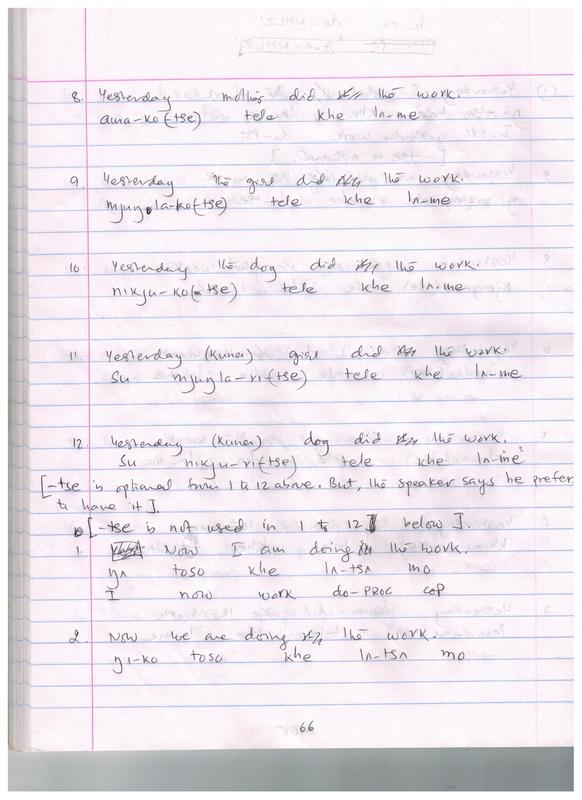 8. Yesterday mother did the work.
ama-ko(-tse) tele khe lʌ-me
9. Yesterday the girl did the work.
mjuŋla-ko(-tse) tele khe lʌ-me
10. Yesterday the dog did the work.
nikju-ko(-tse) tele khe lʌ-me
11. Yesterday (kunei) girl did the work.
su mjuŋla-ri(-tse) tele khe lʌ-me
12. Yesterday (kunei) dog did the work.
su nikju-ri(-tse) tele khe lʌ-me
[-tse is optional form 1 to 12 above. But, the speaker says he prefer
to have it].
[-tse is not used in 1 to 12 below].
1. Now I am doing the work.
ŋʌ toso khe lʌ-tsʌ mo
I now work do-PROG COP
2. Now we are doing the work.
ŋi-ko toso khe lʌ-tsʌ mo
66